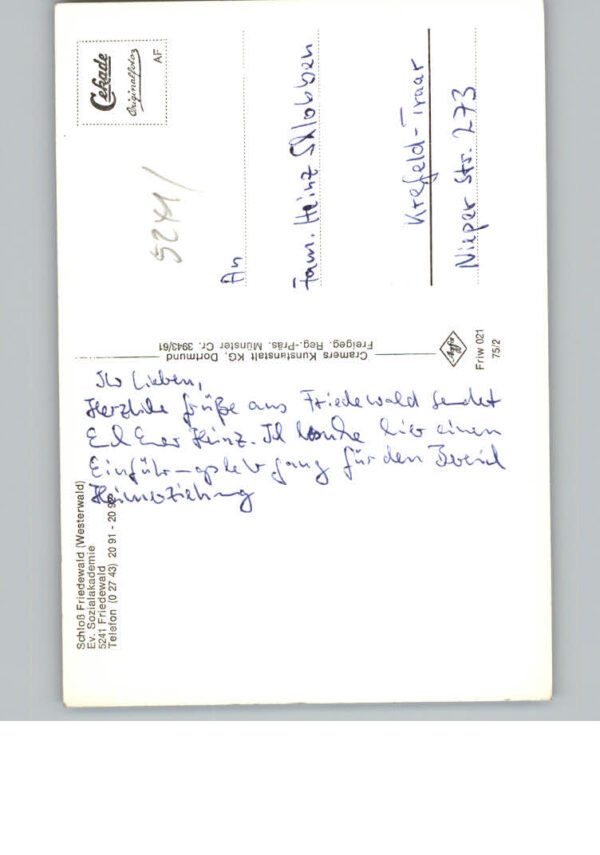 Schloß Friedewald (Westerwald)
Ev. Sozialakademie
5241 Friedewald
Telefon (0 27 43) 20 91 - 20 92
Ihr Lieben,
Herzliche Grüße aus Friedewald sendet
Euch Euer Heinz. Ich mache hier einen
Einführungslehrgang für den Bereich
Heimerziehung
Cramers Kunstanstalt KG, Dortmund
Freigeg. Reg.-Präs. Münster Cr. 3943/61
Agfa
Friw 021
75/2
Cekade
Originalfotos
AF
5241/
An
Fam. Heinz Schlobben
Krefeld-Traar
Nieper Str. 273